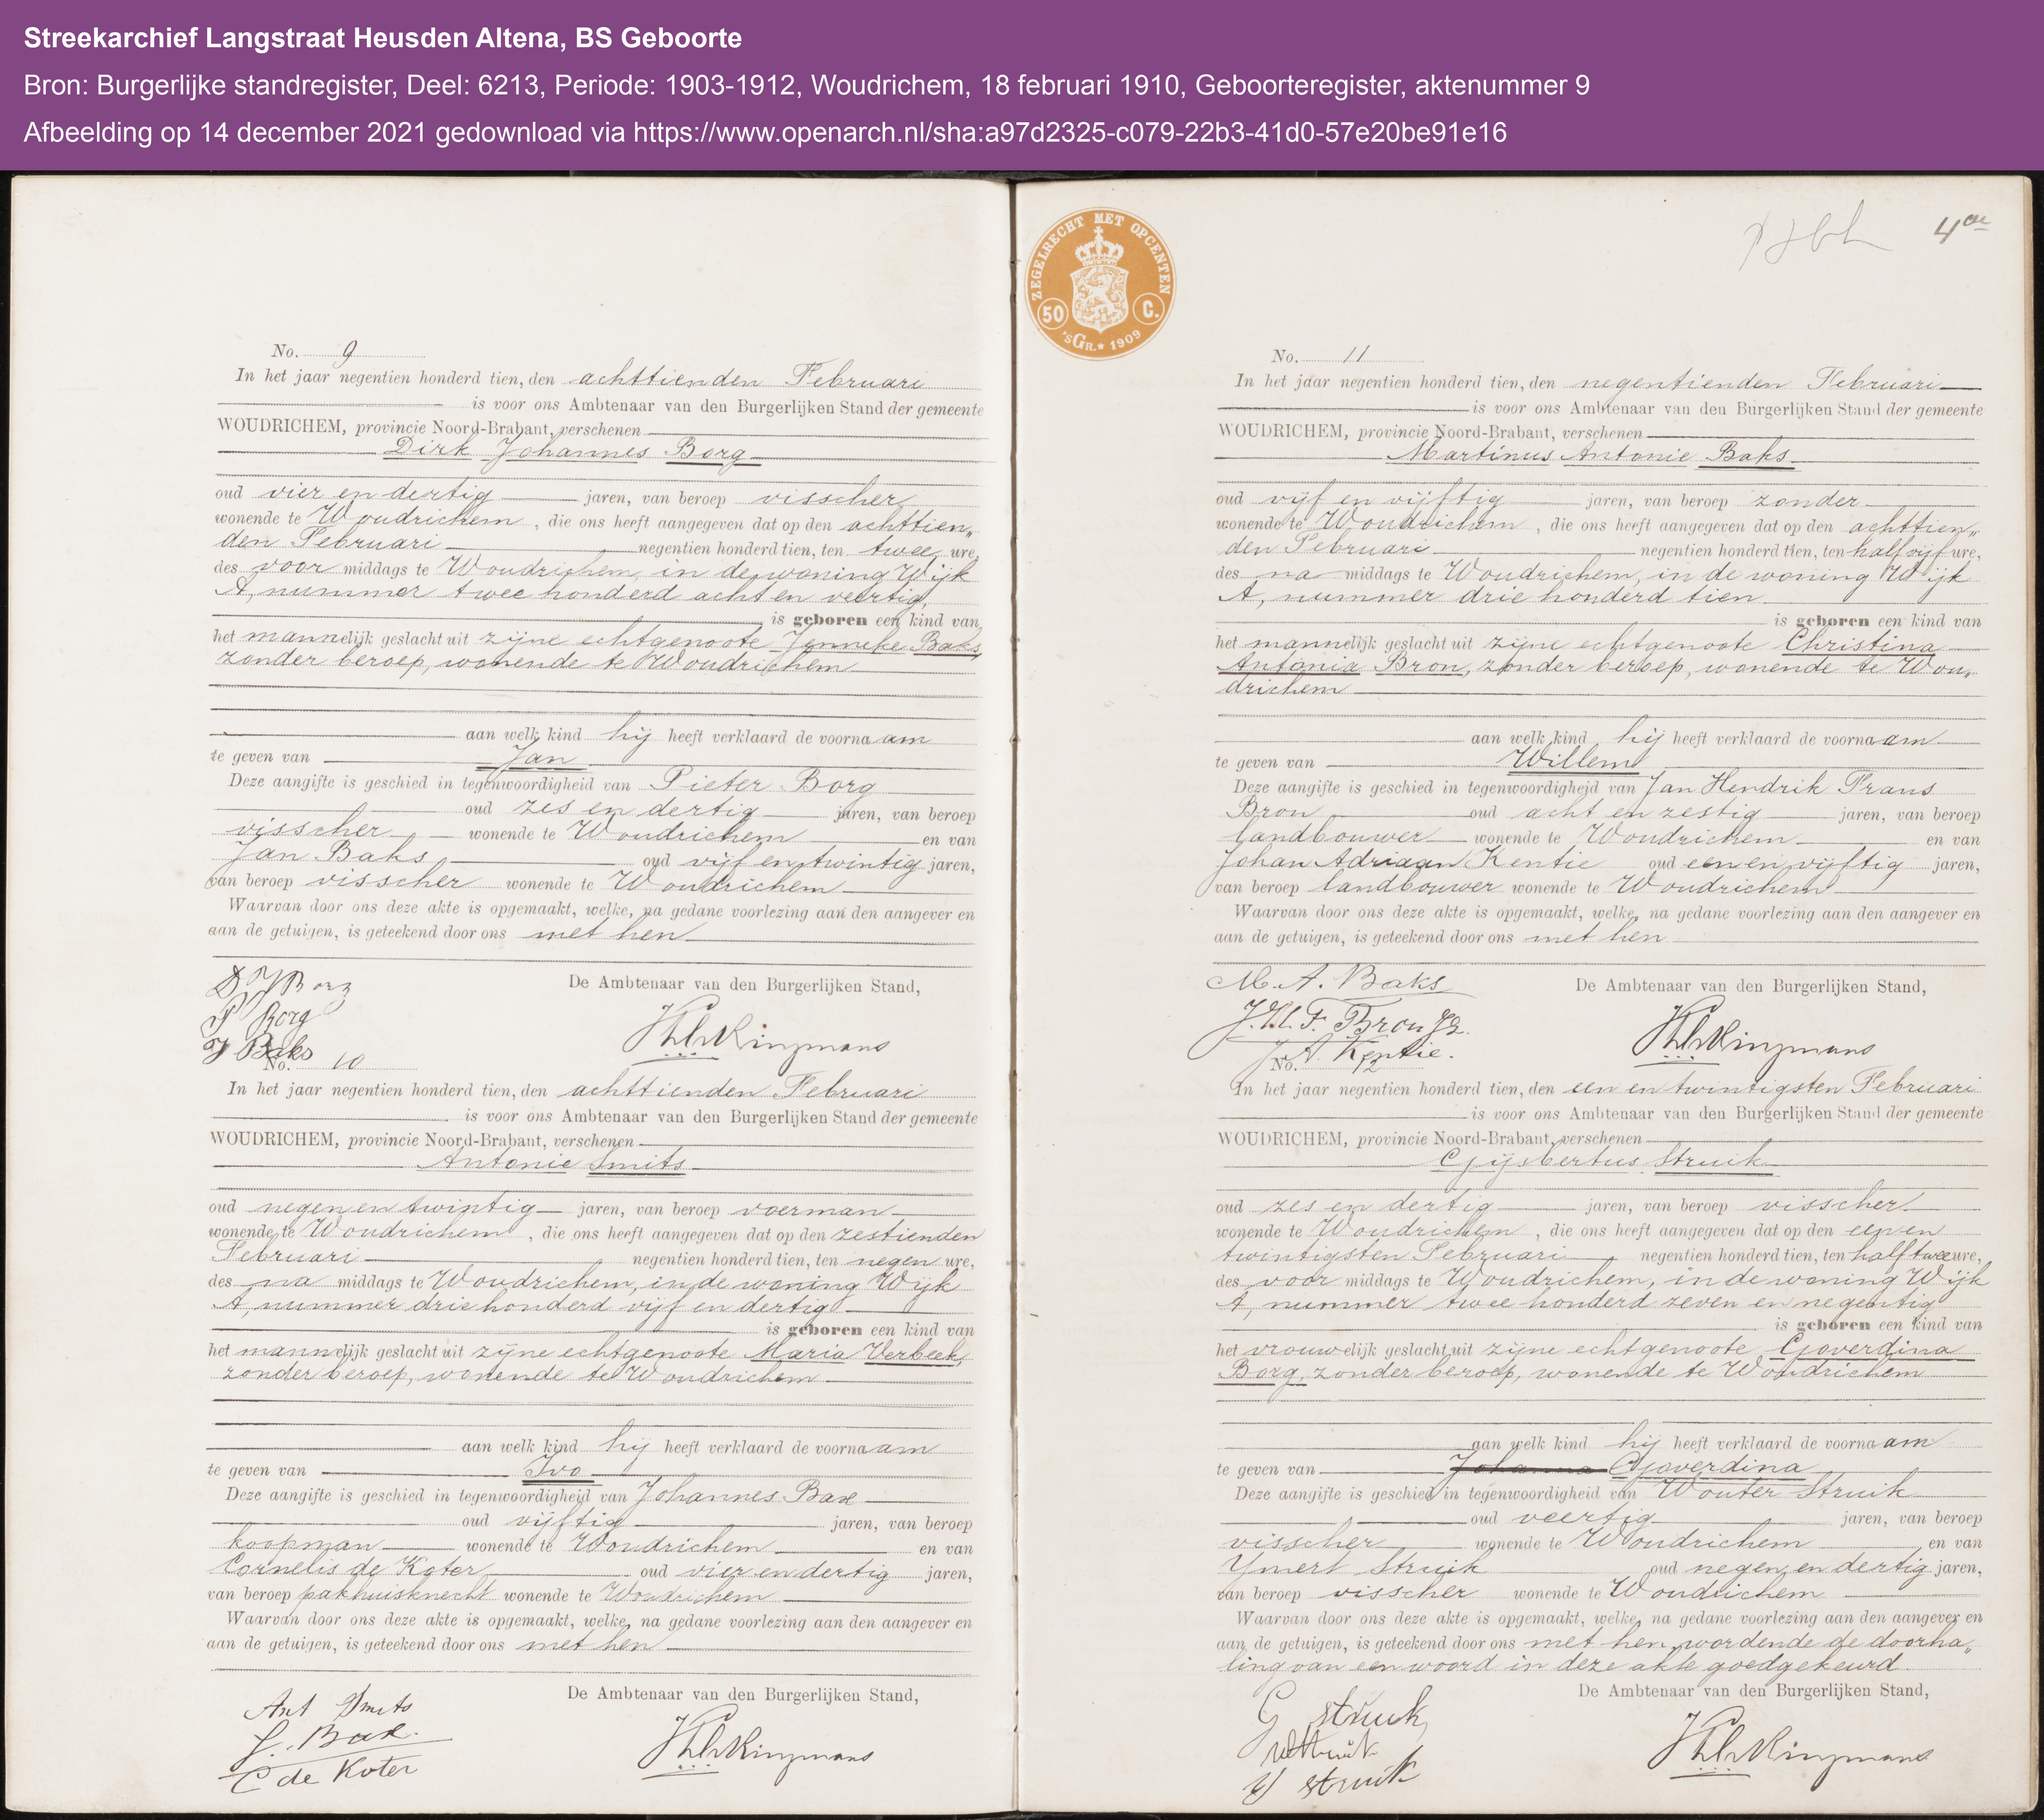 Streekarchief Langstraat Heusden Altena, BS Geboorte
Bron: Burgerlijke standregister, Deel: 6213, Periode: 1903-1912, Woudrichem, 18 februari 1910, Geboorteregister, aktenummer 9
Afbeelding op 14 december 2021 gedownload via https://www.openarch.nl/sha:a97d2325-c079-22b3-41d0-57e20be91e16
No. 9
In het jaar negentien honderd tien, den achttienden Februari
is voor ons Ambtenaar van den Burgerlijken Stand der gemeente
WOUDRICHEM, provincie Noord-Brabant, verschenen
Dirk Johannes Borg
oud vier en dertig jaren, van beroep visscher
wonende te Woudrichem, die ons heeft aangegeven dat op den achttien„
den Februari negentien honderd tien, ten twee ure,
des voor middags te Woudrichem, in de woning Wijk
A, nummer twee honderd acht en veertig,
is geboren een kind van
het mannelijk geslacht uit zijne echtgenoote Jenneke Baks,
zonder beroep, wonende te Woudrichem
aan welk kind hij heeft verklaard de voornaam
te geven van Jan
Deze aangifte is geschied in tegenwoordigheid van Pieter Borg
oud zes en dertig jaren, van beroep
visscher wonende te Woudrichem en van
Jan Baks oud vijf en twintig jaren,
van beroep visscher wonende te Woudrichem
Waarvan door ons deze akte is opgemaakt, welke, na gedane voorlezing aan den aangever en
aan de getuigen, is geteekend door ons met hen
De Ambtenaar van den Burgerlijken Stand,
DJ Borg
P Borg
J Baks
No. 10
In het jaar negentien honderd tien, den achttienden Februari
is voor ons Ambtenaar van den Burgerlijken Stand der gemeente
WOUDRICHEM, provincie Noord-Brabant, verschenen
Antonie Smits
oud negen en twintig jaren, van beroep voerman
wonende te Woudrichem, die ons heeft aangegeven dat op den zestienden
Februari negentien honderd tien, ten negen ure,
des na middags te Woudrichem, in de woning Wijk
A, nummer drie honderd vijf en dertig
is geboren een kind van
het mannelijk geslacht uit zijne echtgenoote Maria Verbeek,
zonder beroep, wonende te Woudrichem
aan welk kind hij heeft verklaard de voornaam
te geven van Ivo
Deze aangifte is geschied in tegenwoordigheid van Johannes Bax
oud vijftig jaren, van beroep
koopman wonende te Woudrichem en van
Cornelis de Koter oud vier en dertig jaren,
van beroep pakhuisknecht wonende te Woudrichem
Waarvan door ons deze akte is opgemaakt, welke, na gedane voorlezing aan den aangever en
aan de getuigen, is geteekend door ons met hen
De Ambtenaar van den Burgerlijken Stand,
Ant Smits
J. Bax.
C de Koter
ZEGELRECHT MET OPCENTEN
50 C.
'sGR. * 1909
4de
No. 11
In het jaar negentien honderd tien, den negentienden Februari
is voor ons Ambtenaar van den Burgerlijken Stand der gemeente
WOUDRICHEM, provincie Noord-Brabant, verschenen
Martinus Antonie Baks
oud vijf en vijftig jaren, van beroep zonder
wonende te Woudrichem, die ons heeft aangegeven dat op den achttien„
den Februari negentien honderd tien, ten half vijf ure,
des na middags te Woudrichem, in de woning Wijk
A, nummer drie honderd tien
is geboren een kind van
het mannelijk geslacht uit zijne echtgenoote Christina
Antonia Bron, zonder beroep, wonende te Wou„
drichem
aan welk kind hij heeft verklaard de voornaam
te geven van Willem
Deze aangifte is geschied in tegenwoordigheid van Jan Hendrik Frans
Bron oud acht en zestig jaren, van beroep
landbouwer wonende te Woudrichem en van
Johan Adriaan Kentie oud een en vijftig jaren,
van beroep landbouwer wonende te Woudrichem
Waarvan door ons deze akte is opgemaakt, welke, na gedane voorlezing aan den aangever en
aan de getuigen, is geteekend door ons met hen
De Ambtenaar van den Burgerlijken Stand,
M. A. Baks
J. H. F. Bron
J. A. Kentie.
No. 12
In het jaar negentien honderd tien, den een en twintigsten Februari
is voor ons Ambtenaar van den Burgerlijken Stand der gemeente
WOUDRICHEM, provincie Noord-Brabant, verschenen
Gijsbertus Struik
oud zes en dertig jaren, van beroep visscher
wonende te Woudrichem, die ons heeft aangegeven dat op den een en
twintigsten Februari negentien honderd tien, ten half twee ure,
des voor middags te Woudrichem, in de woning Wijk
A, nummer twee honderd zeven en negentig
is geboren een kind van
het vrouwelijk geslacht uit zijne echtgenoote Goverdina
Borg, zonder beroep, wonende te Woudrichem
aan welk kind hij heeft verklaard de voornaam
te geven van Johanna Goverdina
Deze aangifte is geschied in tegenwoordigheid van Wouter Struik
oud veertig jaren, van beroep
visscher wonende te Woudrichem en van
Ymert Struik oud negen en dertig jaren,
van beroep visscher wonende te Woudrichem
Waarvan door ons deze akte is opgemaakt, welke, na gedane voorlezing aan den aangever en
aan de getuigen, is geteekend door ons met hen, wordende de doorha„
ling van een woord in deze akte goedgekeurd.
De Ambtenaar van den Burgerlijken Stand,
G Struik
W Struik
Y Struik